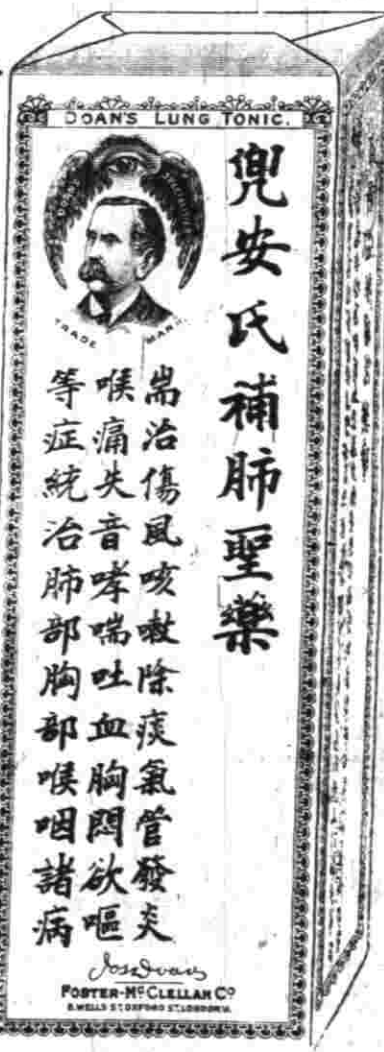 DOAN'S LUNG TONIC.
TRADE MARK
兜安氏補肺聖藥
耑治傷風咳嗽除痰氣管發炎
喉痛失音哮喘吐血胸悶欲嘔
等症統治肺部胸部喉咽諸病
FOSTER-McCLELLAN Co
8.WELLS ST OXFORD ST.LONDON W.